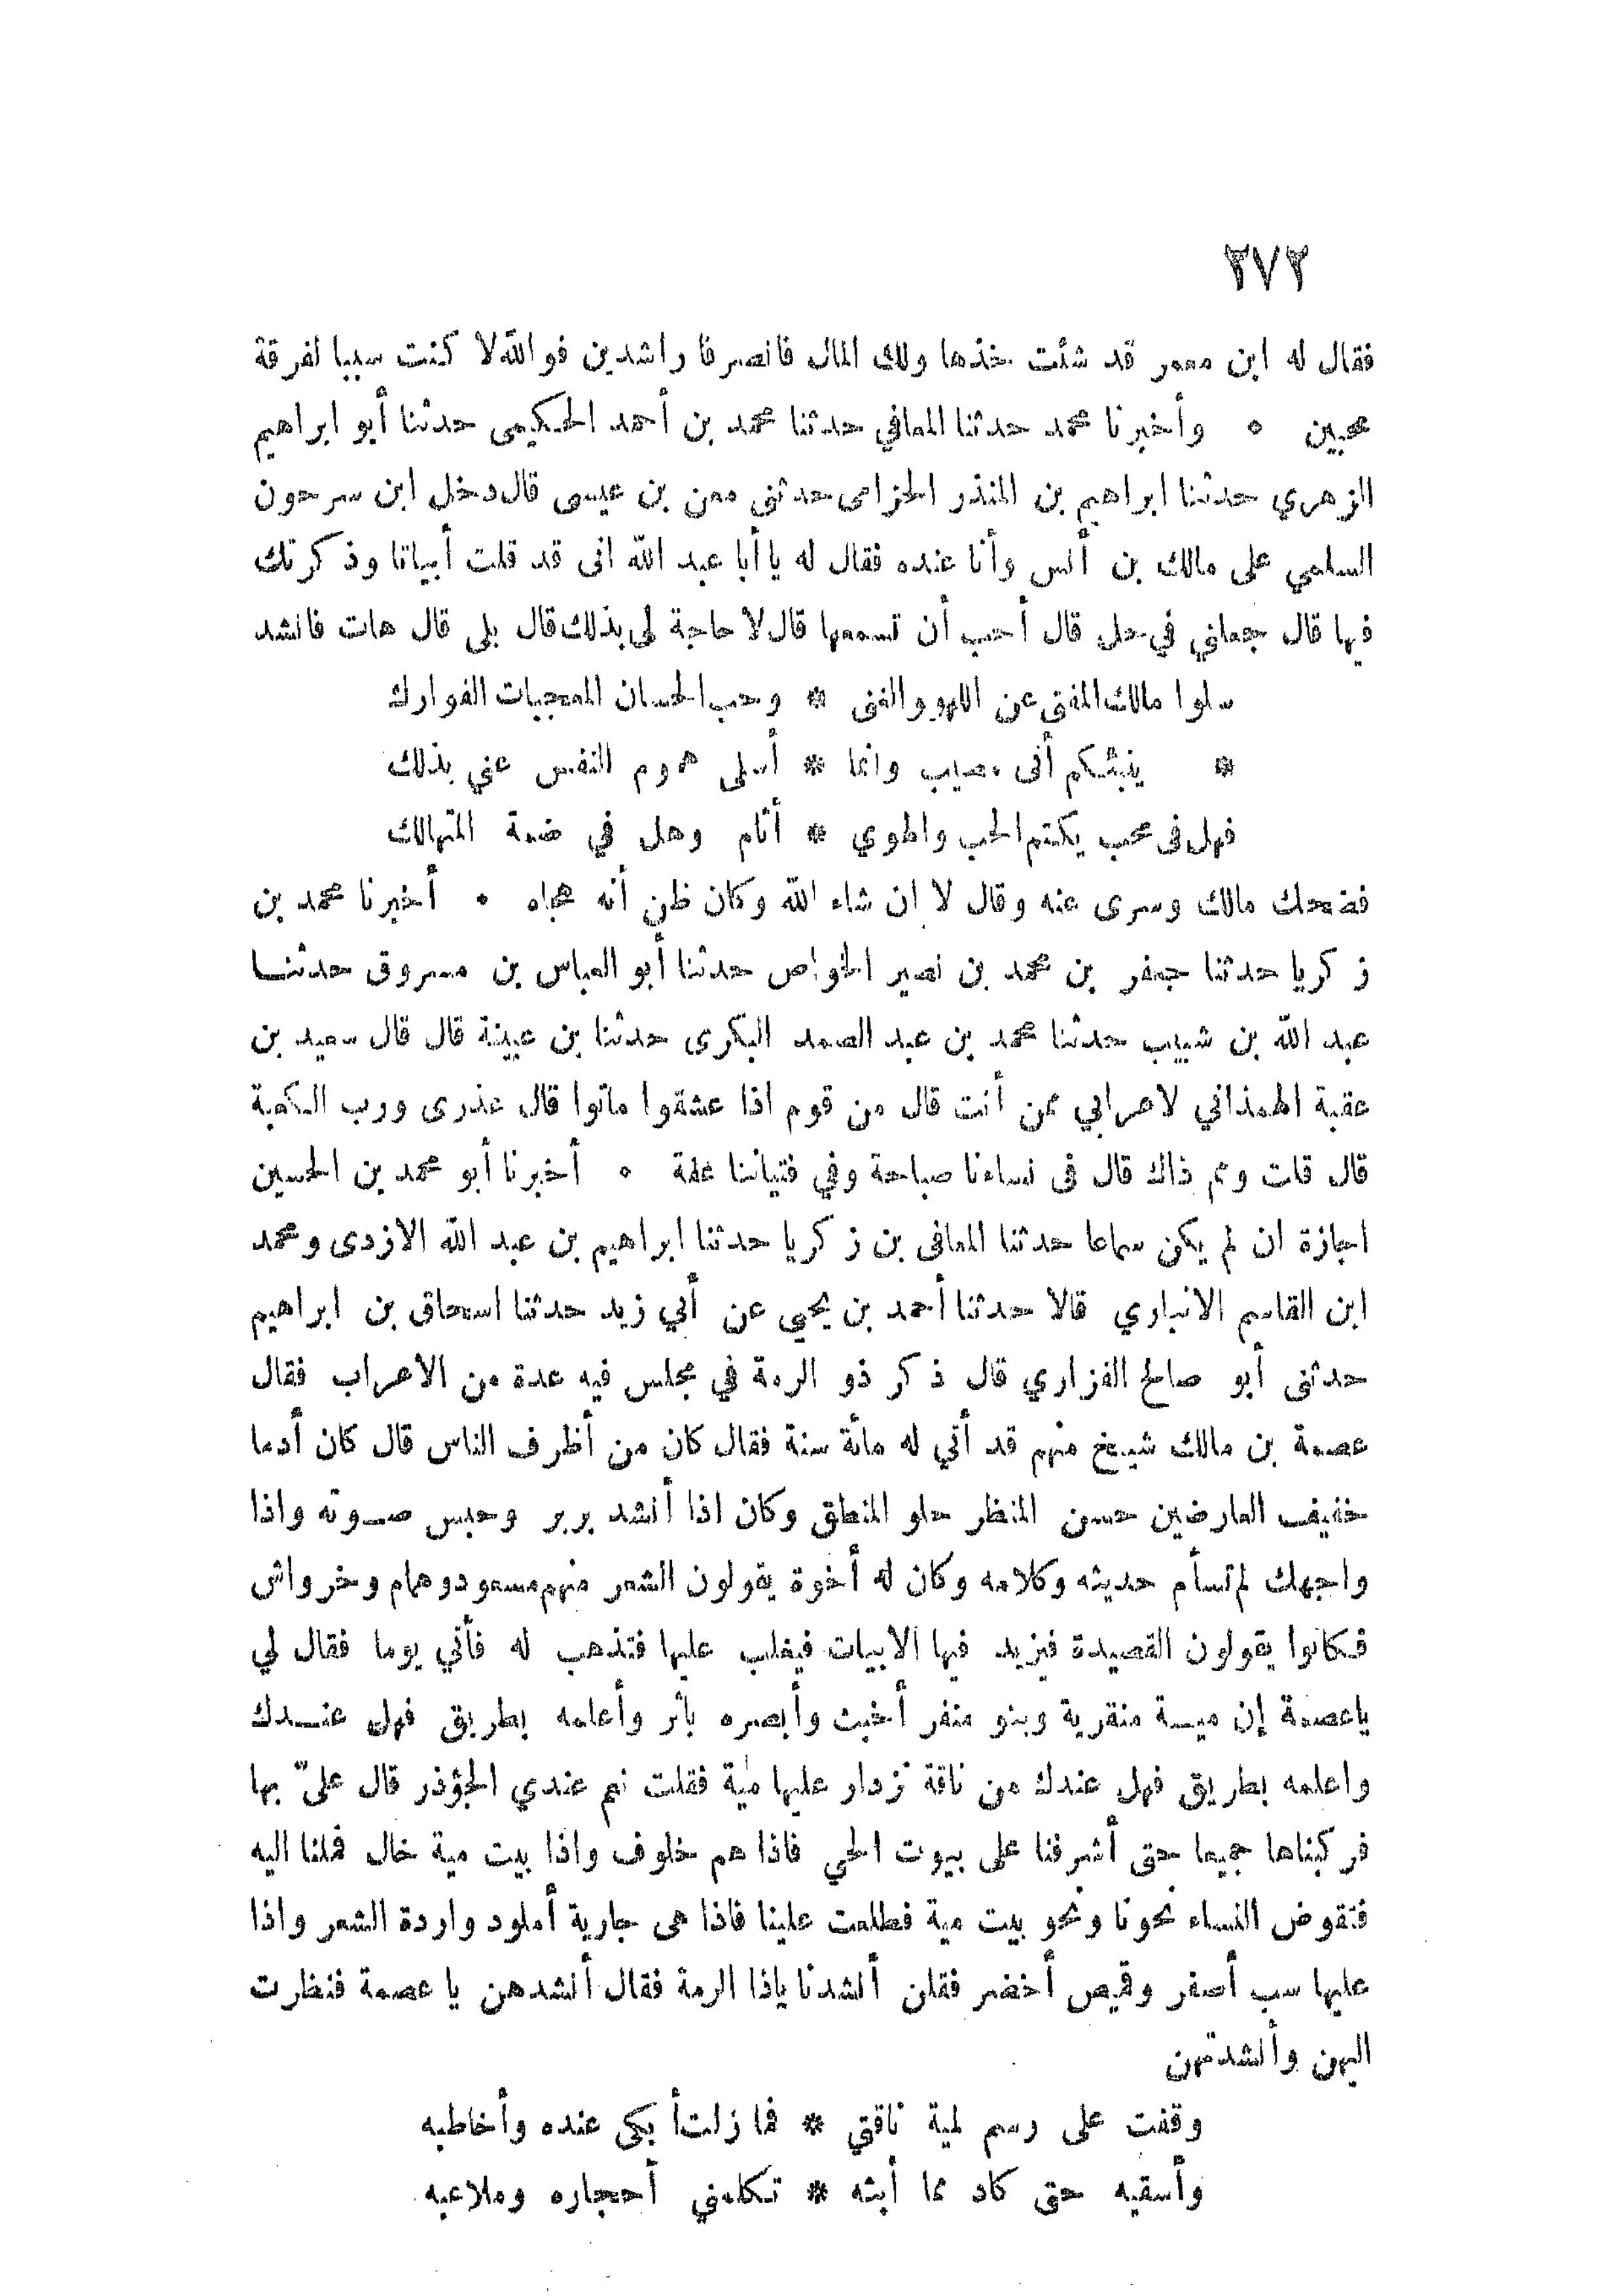 ٢٧٢
فقال له ابن معمر قد شئت خذها ولك المال فانصرفا راشدين فوالله لا كنت سببا لفرقة
محبين ٥ وأخبرنا محمد حدثنا المعافي حدثنا محمد بن أحمد الحكيمى حدثنا أبو ابراهيم
الزهري حدثنا ابراهيم بن المنذر الحزامى حدثنى معن بن عيسى قال دخل ابن سرحون
السلمي على مالك بن أنس وأنا عنده فقال له يا أبا عبد الله انى قد قلت أبياتا وذكرتك
فيها قال جعلني في حل قال أحب أن تسمعها قال لا حاجة لى بذلك قال بلى قال هات فانشد
سلوا مالك المفتى عن اللهو والغنى * وحب الحسان المعجبات الفوارك
* ينبئكم أنى مصيب وانما * أسلى هموم النفس عني بذلك
فهل فى محب يكتم الحب والهوي * أثام وهل في ضمة المتهالك
فضحك مالك وسرى عنه وقال لا ان شاء الله وكان ظن أنه هجاه ٠ أخبرنا محمد بن
زكريا حدثنا جعفر بن محمد بن نصير الخواص حدثنا أبو العباس بن مسروق حدثنا
عبد الله بن شبيب حدثنا محمد بن عبد الصمد البكرى حدثنا بن عيينة قال قال سعيد بن
عقبة الهمذاني لاعرابي ممن أنت قال من قوم اذا عشقوا ماتوا قال عذرى ورب الكعبة
قال قلت ومم ذاك قال فى نساءنا صباحة وفي فتياننا عفة ٥ أخبرنا أبو محمد بن الحسين
اجازة ان لم يكن سماعا حدثنا المعافى بن زكريا حدثنا ابراهيم بن عبد الله الازدى ومحمد
ابن القاسم الانباري قالا حدثنا أحمد بن يحيى عن أبي زيد حدثنا اسحاق بن ابراهيم
حدثنى أبو صالح الفزاري قال ذكر ذو الرمة في مجلس فيه عدة من الاعراب فقال
عصمة بن مالك شيخ منهم قد أتي له مائة سنة فقال كان من أظرف الناس قال كان أدما
خفيف العارضين حسن المنظر حلو المنطق وكان اذا أنشد بربر وحبس صوته واذا
واجهك لم تسأم حديثه وكلامه وكان له أخوة يقولون الشعر منهم مسعود وهمام وخرواش
فكانوا يقولون القصيدة فيزيد فيها الابيات فيغلب عليها فتذهب له فأتي يوما فقال لي
ياعصمة إن مية منقرية وبنو منقر أخبث وأبصره بأثر وأعلمه بطريق فهل عندك
واعلمه بطريق فهل عندك من ناقة نزدار عليها مية فقلت نعم عندي الجؤذر قال علىّ بها
فركبناها جميعا حتى أشرفنا على بيوت الحي فاذا هم خلوف واذا بيت مية خال فملنا اليه
فتقوض النساء نحونا ونحو بيت مية فطلعت علينا فاذا هى جارية أملود واردة الشعر واذا
عليها سب أصفر وقميص أخضر فقلن أنشدنا ياذا الرمة فقال أنشدهن يا عصمة فنظرت
اليهن وأنشدتهن
وقفت على رسم لمية ناقتي * فما زلت أبكى عنده وأخاطبه
وأسقيه حتى كاد مما أبثه * تكلمني أحجاره وملاعبه